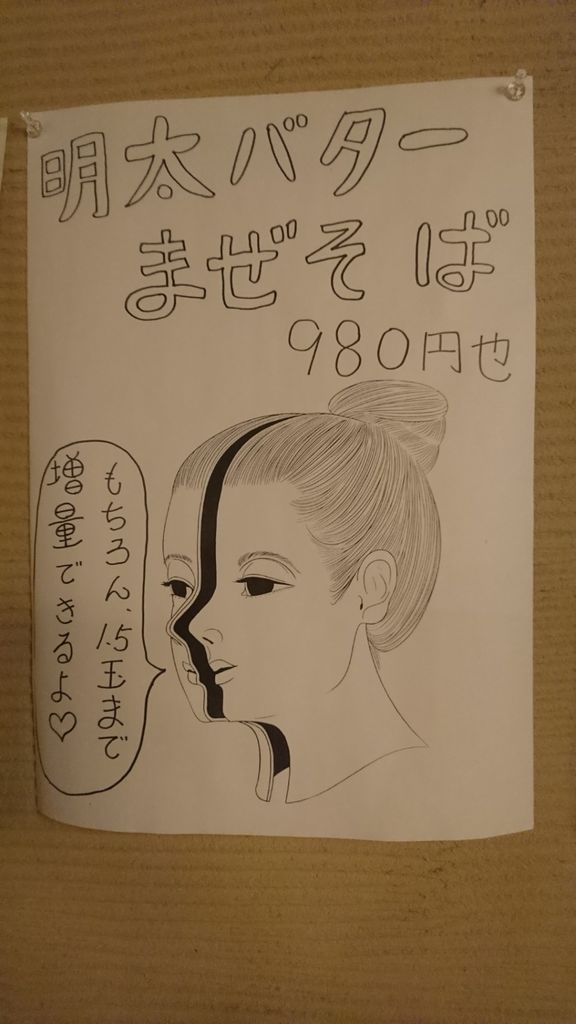 明太バター
まぜそば
980円也
もちろん、1.5玉まで
増量できるよ♡